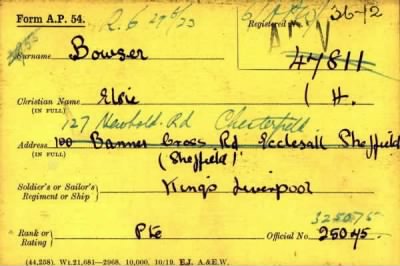 Form A.P. 54.
R.G 29/5/23
36-12
Registered No.
47811
Surname Bowser
Christian Name (IN FULL) Elsie (H.
127 Newbold Rd Chesterfield
Address (IN FULL) 100 Banner Cross Rd Ecclesall Sheffield
(Sheffield)
Soldier's or Sailor's Regiment or Ship King's Liverpool
325075
Rank or Rating Pte Official No. 25045.
(44,258). Wt.21,681—2968. 10,000. 10/19. E.J. A.&E.W.